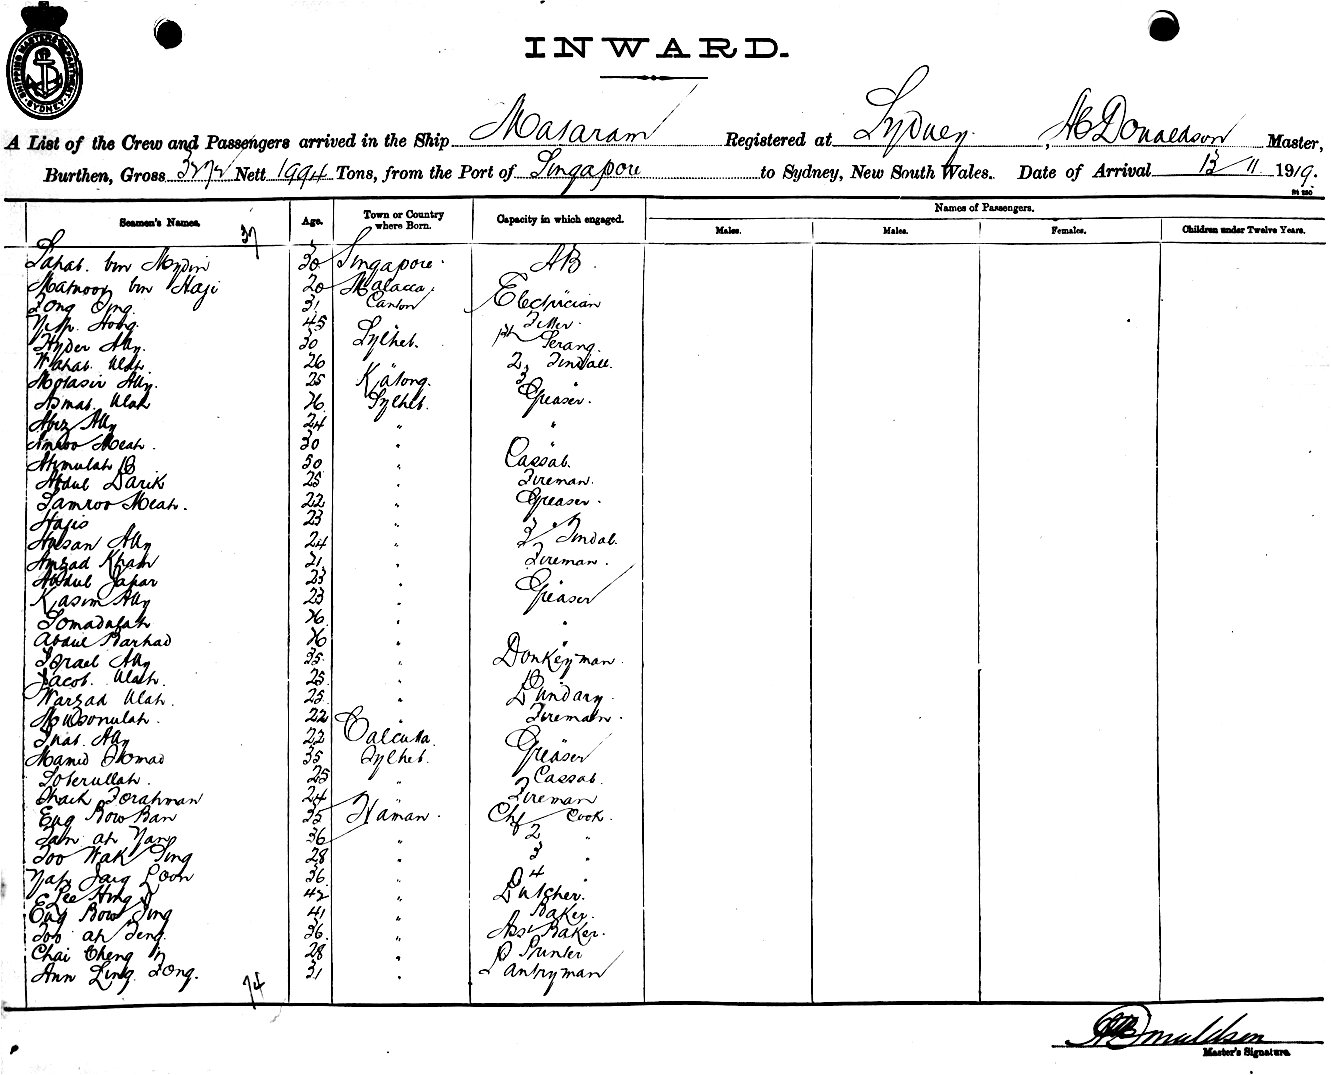 SHIPPING MASTER'S DEPARTMENT SYDNEY
INWARD.
A List of the Crew and Passengers arrived in the Ship Mataram Registered at Sydney, Donaldson Master,
Burthen, Gross 3272 Nett 1994 Tons, from the Port of Singapore to Sydney, New South Wales. Date of Arrival 13/11 1919.
Seamen's Names. Age. Town or Country where Born. Capacity in which engaged. Names of Passengers.
Males. Males. Females. Children under Twelve Years.
37
Sahat bin Mydin 30 Singapore AB.
bin Haji 20 Malacca
Fong 31 Canton Electrician
45 Fitter
Hyder Ally. 30 Sylhet. 1st Serang.
Wahab Ulah. 26 " 2 Tindall.
Ally. 25 Katong. 3 "
Asmat Ulah 26 Sylhet. Greaser.
Ally 24 " "
Meah. 30 " "
30 " Cassab.
Abdul Barik 25 " Fireman.
Samroo Meah. 22 " Greaser.
23 "
Hassan Ally 24 " Tindal.
Amzad Khan 21 " Fireman.
Abdul Japar 23 "
Kasim Ally 23 " Greaser
26 " "
Abdul 26 "
Israel Ally 35 " Donkeyman.
Jacob Ulah. 25 " "
Warzad Ulah. 25 "
22 " Fireman.
Ally 22 Calcutta.
Hamid 35 Sylhet. Greaser
Soterullah. 25 " Cassab.
24 " Fireman
Eng Bow Ban 35 Hainan. Chf Cook.
Tan ah Yang 36 " 2 "
Foo Wak Sing 28 " 3 "
Yap Loon 36 " 4 "
Lee Hing 42 " Butcher.
Eng Bow Sing 41 " Baker.
Foo ah Seng 36 " Asst Baker.
Chai Cheng 28 " Printer
Ann Ling Fong. 31 " Pantryman
74
Donaldson
Master's Signature.